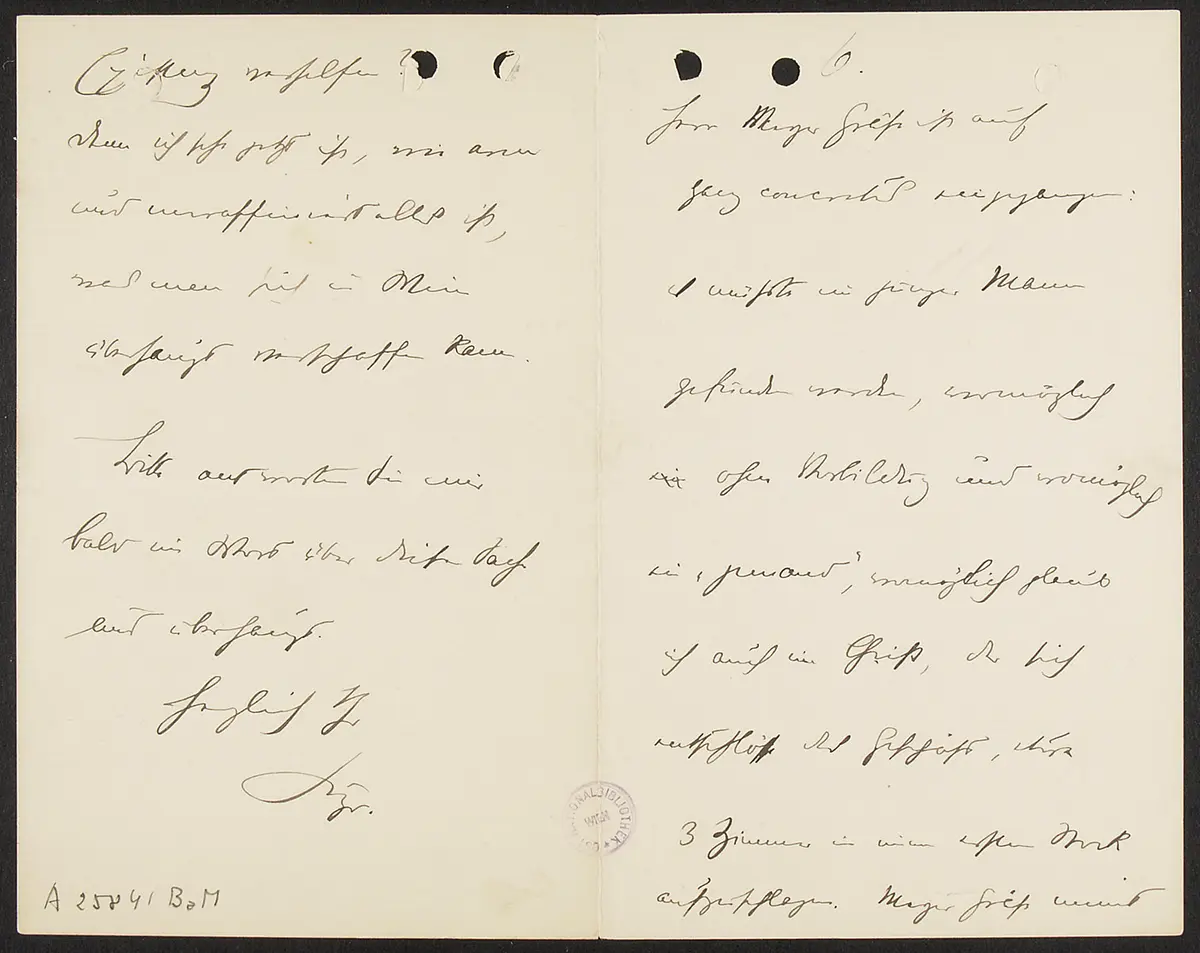 Existenz verhelfen?
denn ich sehe jetzt ist, wie arm
und unraffiniert alles ist,
was man sich in Wien
überhaupt verschaffen kann.
Bitte antworten Sie mir
bald ein Wort über diese Sache
und überhaupt.
Herzlich Ihr
6.
Herr Meyer Gräfe ist auf
ganz concretes eingegangen:
es müsste ein junger Mann
gefunden werden, womöglich
ohne Vorbildung und womöglich
ein „jemand“, womöglich glaub
ich auch ein Christ, der sich
entschlösse das Geschäft, etwa
3 Zimmer in einem ersten Stock
aufzuschlagen. Meyer Gräfe meint
NATIONALBIBLIOTHEK
WIEN
A 25841 BaM